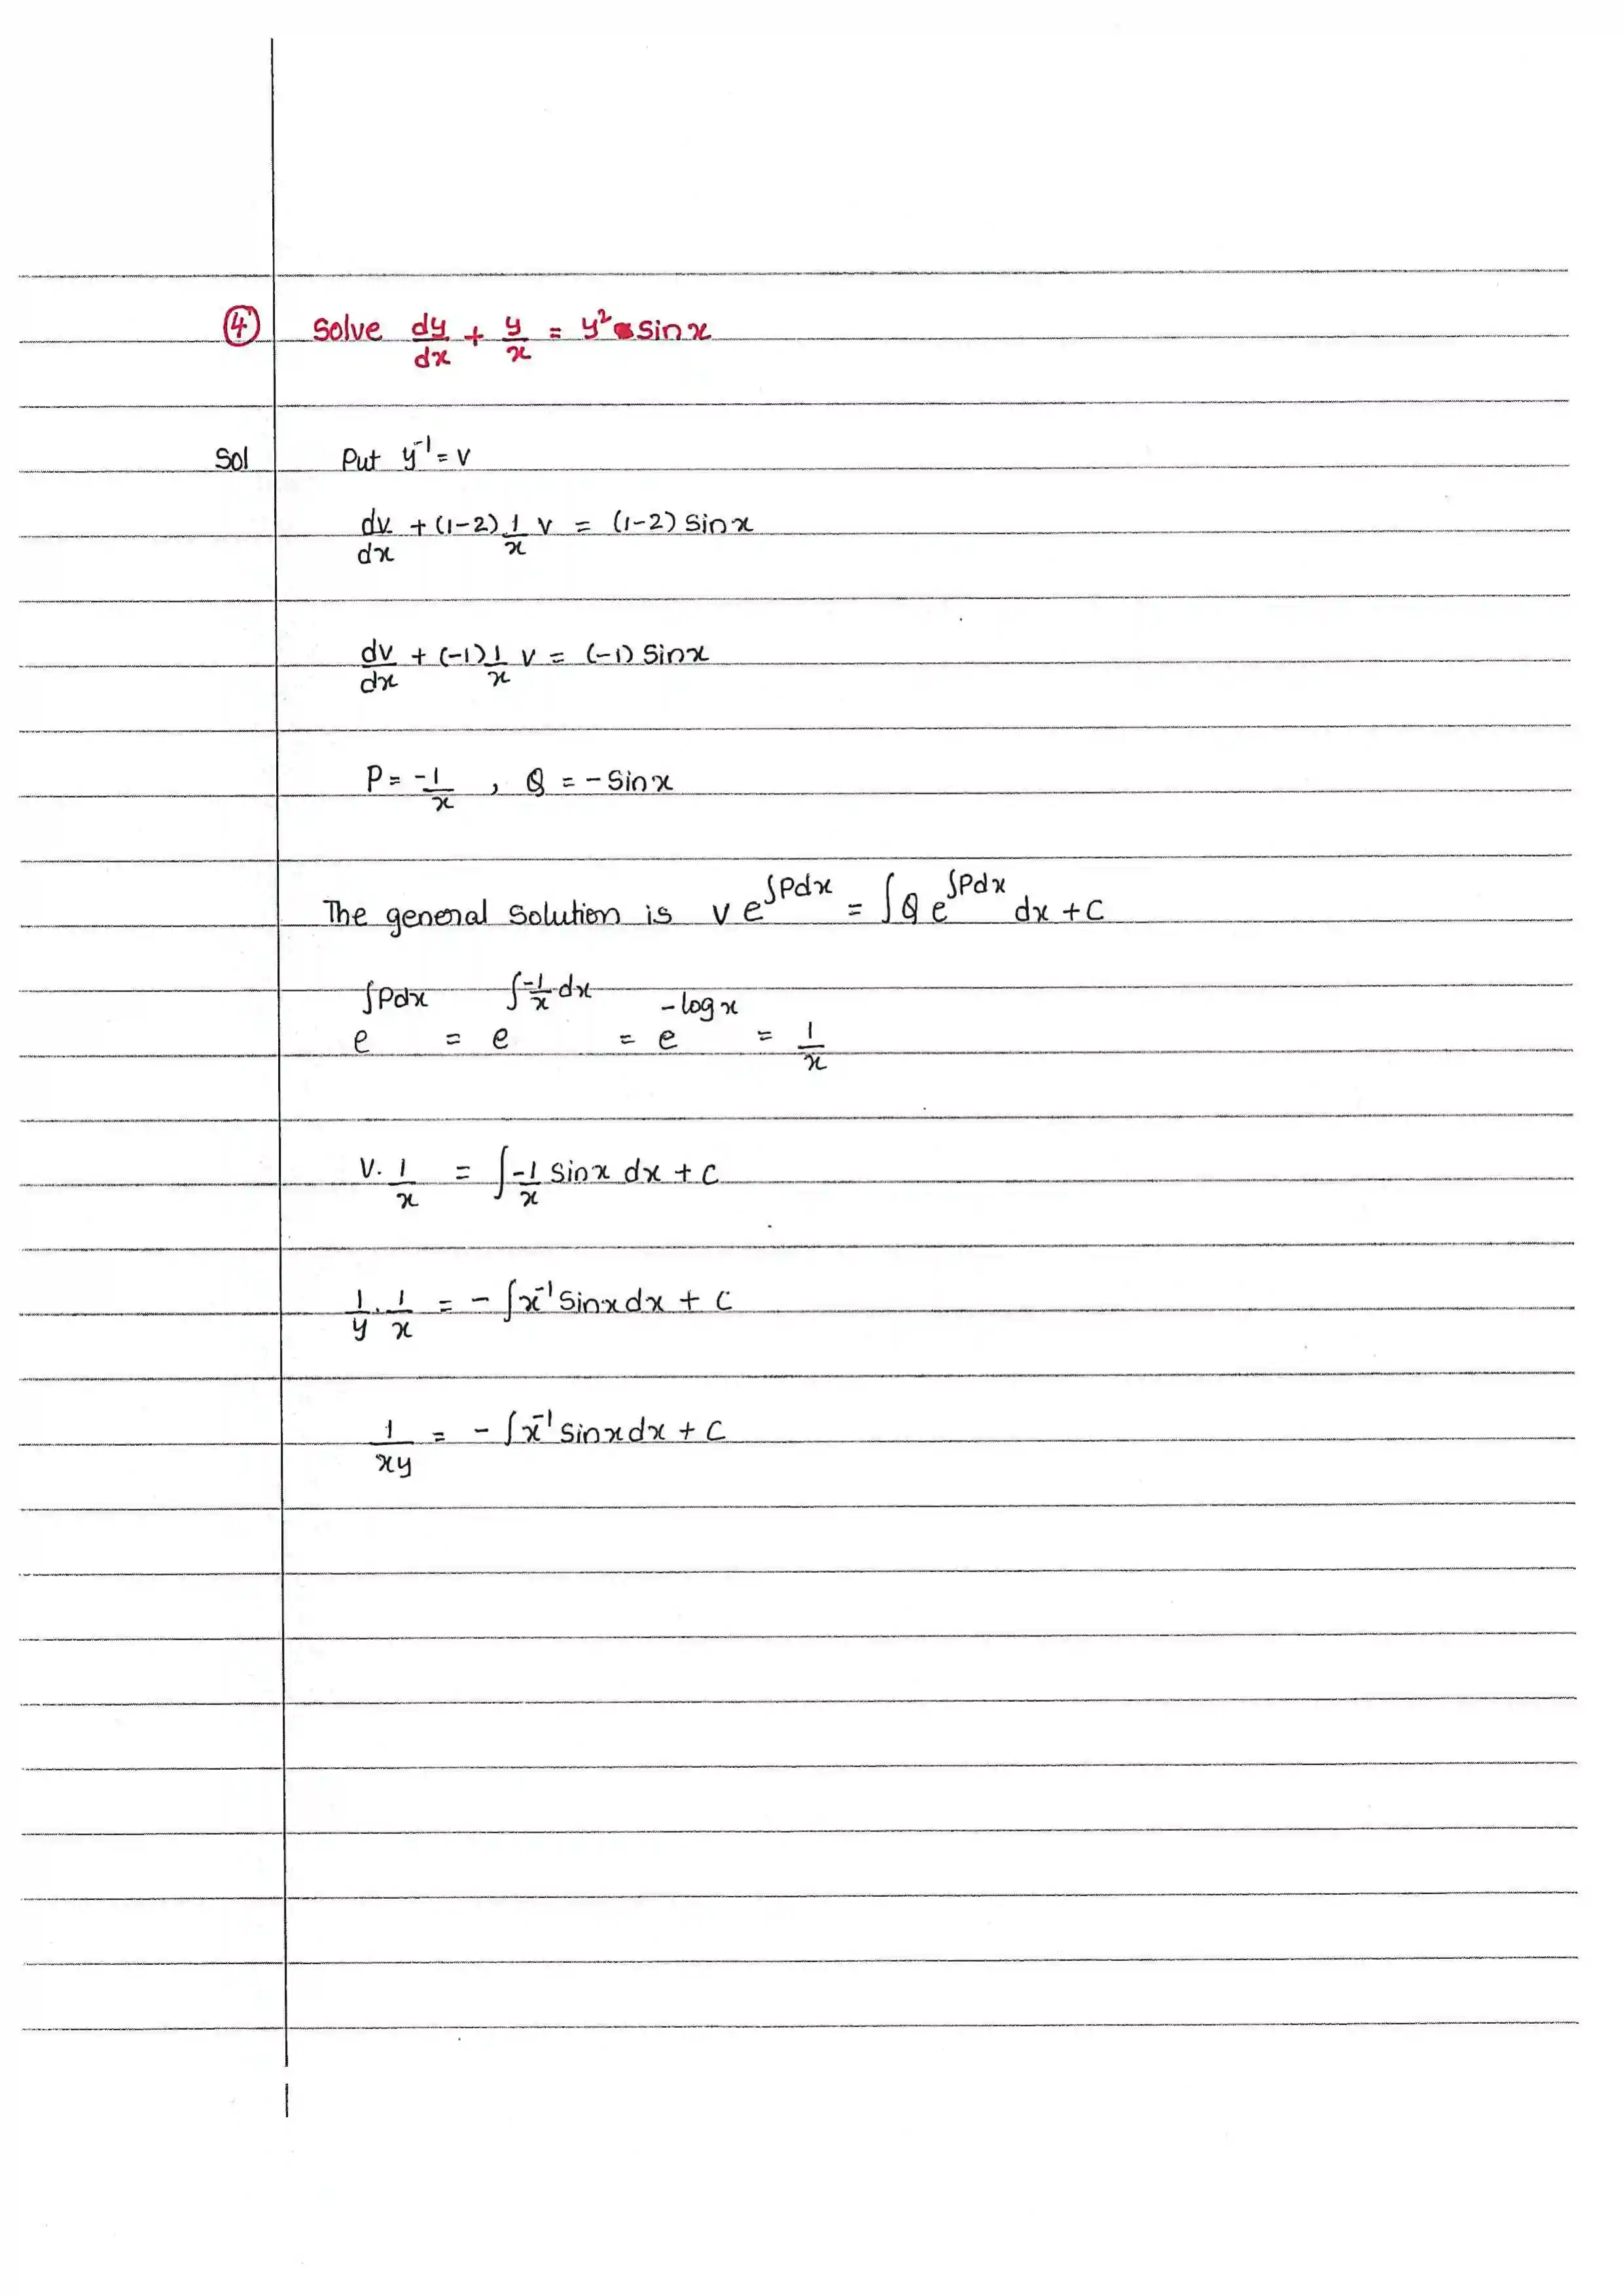 ④ Solve dy/dx + y/x = y² sinx
Sol Put y⁻¹ = v
dv/dx + (1-2) 1/x v = (1-2) sinx
dv/dx + (-1) 1/x v = (-1) Sinx
P = -1/x , Q = - Sinx
The general solution is v e^∫Pdx = ∫Q e^∫Pdx dx + C
e^∫Pdx = e^∫-1/x dx = e^-log x = 1/x
V. 1/x = ∫ -1/x Sinx dx + C
1/y . 1/x = - ∫x⁻¹ Sinx dx + C
1/xy = - ∫x⁻¹ sinx dx + C